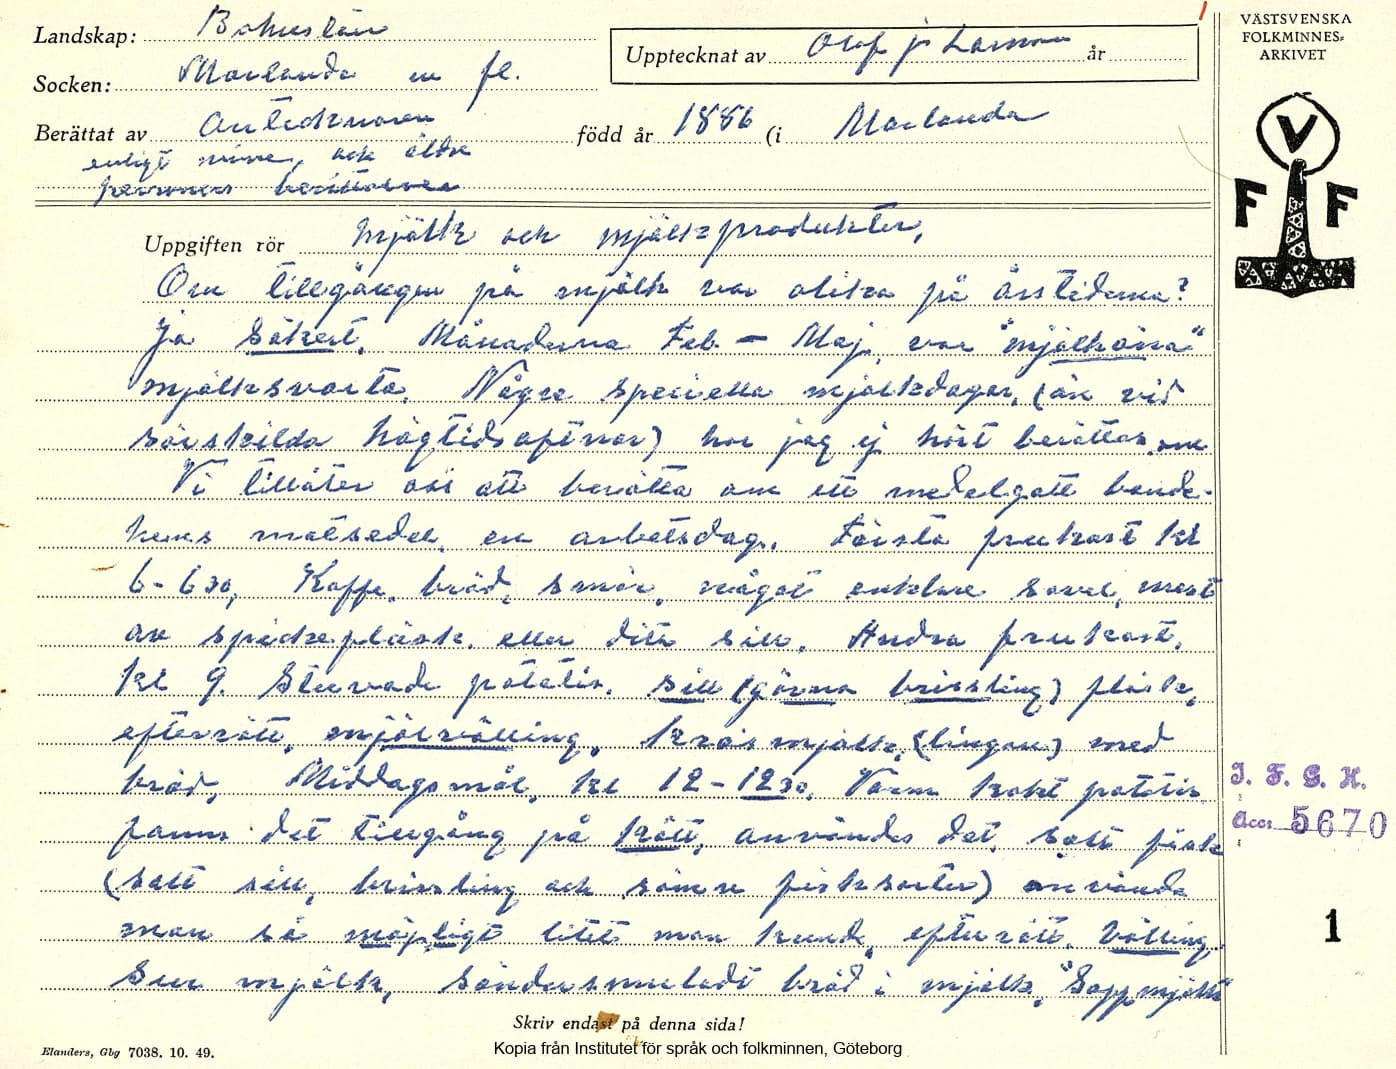 Landskap: Bohuslän
Upptecknat av Olof J Larsson år
VÄSTSVENSKA
FOLKMINNES=
ARKIVET
Socken: Morlanda m fl.
Berättat av Antecknaren född år 1886 (i Morlanda
enligt minne, och äldre
personers berättelser
V
F F
Uppgiften rör Mjölk och mjölkprodukter.
Om tillgången på mjölk var olika på årstiderna?
Ja säkert. Månaderna Feb - Maj, var "mjölköna"
mjölksvarta. Några speciella mjölkdagar, (än vid
särskilda högtidsaftnar) har jag ej hört berättas om
Vi tillåter oss att berätta om ett medelgott bonde-
hems matsedel, en arbetsdag. Första frukost kl
6-6 30, Kaffe, bröd, smör, något enklare sovel, mest
av spickefläsk, eller dito sill. Andra frukost,
kl 9. Stuvade potatis, sill (gärna brissling) fläsk,
efterrätt, mjölvälling, krösmjölk, (lingon) med
bröd, Middagsmål, kl 12-12 30, Varm kokt potatis
fanns det tillgång på kött, användes det, salt fisk
(salt sill, brissling och sämre fisksorter) använde
man så möjligt litet man kunde, efterrätt. Välling,
Sur mjölk, söndersmulat bröd i mjölk, "Soppmjölk"
J. F. G. H.
Acc: 5670
1
Skriv endast på denna sida!
Elanders, Gbg 7038. 10. 49.
Kopia från Institutet för språk och folkminnen, Göteborg